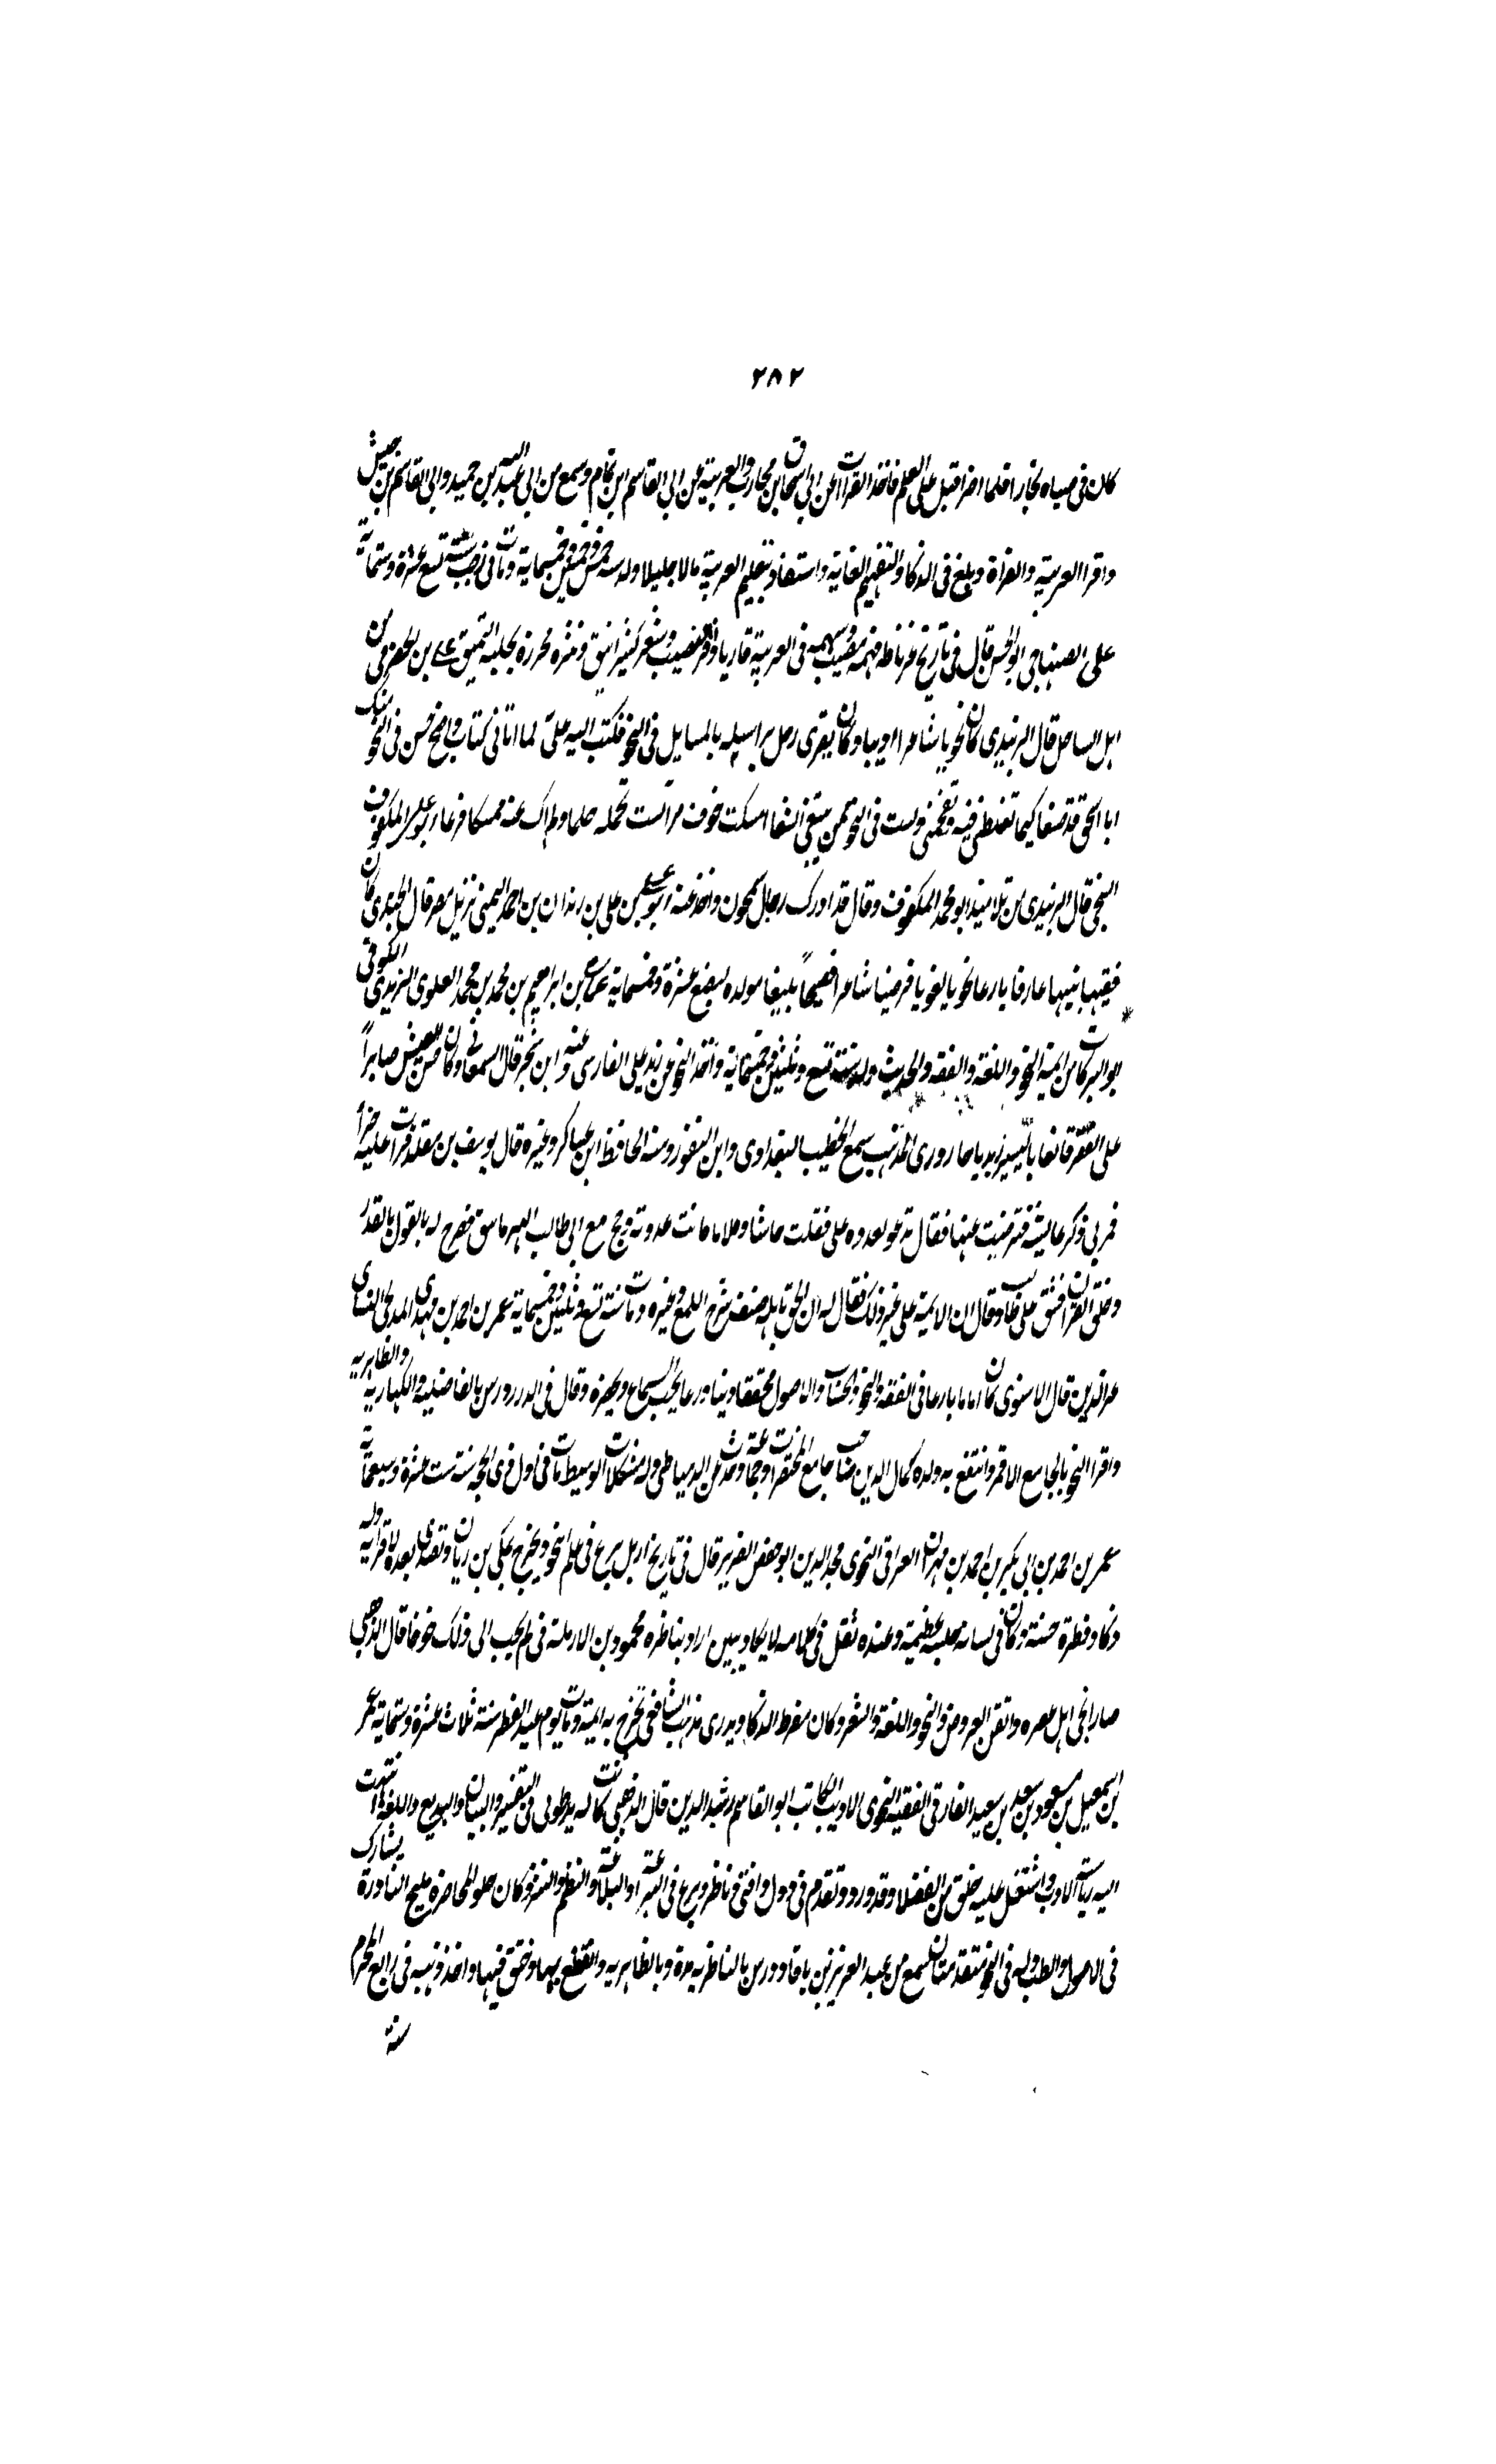 ٢٨٢
كان فى صباه نجارا فلما اضر اقبل على العلم فاخذ القراات عن ابى اسحاق بن محارب والعربية عن ابى القاسم ابن تمام وسمع من ابى عبد الله بن حميد وابى القاسم بن حبيش
واقرا العربية والقراة وبلغ فى الذكا والتفهيم الغاية واستفاد بتعليم العربية مالا جليلا ولد سنة خمس وخمسين وخمسماية ومات فى رجب سنة تسع عشرة وستماية
على الصنهاجى ابو الحسن قال فى تاريخ غرناطه فهمه مصيب وسهمه فى العربية قاريا وافر نصيب وشعر كثير انيق ونثره محررة بحلية التنميق على بن الحضرمى من
اهل الساحل قال الزبيدى كان نحويا شاعرا اديبا وكان يقرى رجل يراسله بالمسايل فى النحو فكتب اليه على لما اتانى كتاب واضح حسن فى النحو منك
ابا اسحق قد صنفا كيما تغلطنى فيه وتفحمنى ولست فى النحو ممن يبتغى الشغفا امسكت خوف مراآت تحمله حلما ولم اك عنه ممسكا فرعا ابو على المكفوف
النحوى قال الزبيدى من تلاميذ ابو محمد المكفوف وقال قد ادرك رجال سحنون واخذ عنه ابو على بن على بن زيدان بن احمد اليمنى نزيل مصر قال الجندى كان
فقيها نبيها عارفا بارعا نحويا لغويا فرضيا شاعرا فصيحاً بليغا مولده لبضع عشرة وخمسماية عمر بن ابراهيم بن محمد بن محمد العلوى الزيدى الكوفى
ابو البركات من ايمة النحو واللغة والفقه والحديث ولد سنة تسع وثلثين وخمسماية واخذ النحو عن زيد على الفارسى وعنه ابن شجر قال السمعانى وكان خشن العيش صابراً
على الفقر قانعا باليسير زيديا جارورى المذهب سمع الخطيب البغدادى وابن النقور ومنه الحافظ ابن عساكر وغيره قال يوسف بن مقلد قرات عليه جزأ
فمر بى ذكر عايشة فترضيت عنها فقال تدعو لعدوه على فقلت حاشا وكلا ما كانت عدوته وحج مع ابى طالب الهراسى فصرح له بالقول بالقدر
وخلق القران فشق على ابى طالب وقال ان الايمة على غير ذلك فقال له ان الحق باهله صنف شرح اللمع وغيره ومات سنة تسع وثلثين وخمسماية عمر بن احمد بن مهدى المدلجى النشاى
عز الدين قال الاسنوى كان اماما بارعا فى الفقه والنحو والحساب والاصول محققا دينا ورعا يحب السماع ويحضره وقال فى الدرر درس بالفاضلية والكهارية والظاهرية
واقرا النحو بالجامع الاقمر وانتفع به ولده كمال الدين صاحب جامع المختصرات وجماعة وحدث عن الدمياطى وله مشكلات الوسيط مات فى اول ذى الحجه سنة ست عشرة وسبعماية
عمر بن احمد بن ابى بكير بن احمد بن مهران العراقى النحوى مجد الدين ابو حفص الضرير قال فى تاريخ اربل برع فى علم النحو وتخرج بمكى بن ريان وتصدر بعده لاقرايه وله
ذكا وفطرة حسنة وكان فى لسانه حبسة عظيمة وعنده ثقل فى كلامه لا يكاد يبين اراد بناظره محمود بن الارملة فى لم يجب الى ذلك خوفا قال الذهبى
صار انحى اهل عصره واتقن العروض والنحو واللغة والشعر وكان مفرط الذكا ويدرى مذهب الشافعى تخرج به ايمة ومات يوم عيد الفطر سنة ثلاث عشرة وستماية عمر
بن اسمعيل بن مسعود بن سعد بن سعيد الفارقى الفقيه النحوى الاديب الكاتب ابو القاسم رشيد الدين قال الذهبى كانت له يد طولى فى التفسير والبيان والبديع واللغه انتهت
اليه رياسة الادب واشتغل عليه خلق من الفضلا وقد وزر وتقدم فى دول وافتى وناظر وبرع فى البراعة والبلاغة والنظم والنثر وكان حلو المحاضرة مليح النادرة يشارك
فى الاصول والطب وله فى النحو مقدمتان سمع من عبد العزيز بن باقا ودرس بالناظريه مدة وبالظاهريه وانقطع بها وخنق فيها واخذ ذهبه فى رابع المحرم
سنة